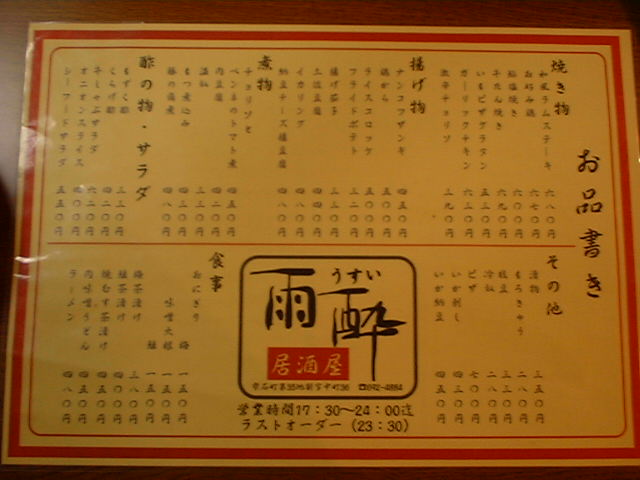 お品書き
焼き物
和風ラムステーキ 六八〇円
お好み鶏 六七〇円
鮭塩焼き 六〇〇円
牛たん焼き 六九〇円
いもピザグラタン 五三〇円
ガーリックチキン 六三〇円
激辛チョリソ 三九〇円
揚げ物
ナンコツザンギ 四五〇円
鶏から 五〇〇円
ライスコロッケ 五五〇円
フライドポテト 三二〇円
揚げ茄子 三三〇円
三位豆腐 四四〇円
イカリング 四八〇円
納豆チーズ揚豆腐 四八〇円
煮物
チョリソと
ペンネのトマト煮 四五〇円
肉豆腐 四二〇円
湯豆腐 三三〇円
もつ煮込み 四三〇円
豚の角煮 四八〇円
酢の物・サラダ
もずく酢 三三〇円
くらげ酢 四二〇円
牛しゃぶサラダ 六二〇円
オニオンスライス 四〇〇円
シーフードサラダ 五五〇円
その他
漬物 三五〇円
もろきゅう 二八〇円
枝豆 三三〇円
冷奴 二八〇円
ピザ 七〇〇円
いか刺し 四三〇円
いか納豆 四五〇円
雨酔
うすい
居酒屋
☎692-4884
営業時間17:30〜24:00迄
ラストオーダー(23:30)
食事
おにぎり 梅 一五〇円
鮭 一五〇円
味噌大根 一五〇円
梅茶漬け 三八〇円
鮭茶漬け 四〇〇円
焼むす茶漬け 四五〇円
肉味噌うどん 四五〇円
ラーメン 四八〇円